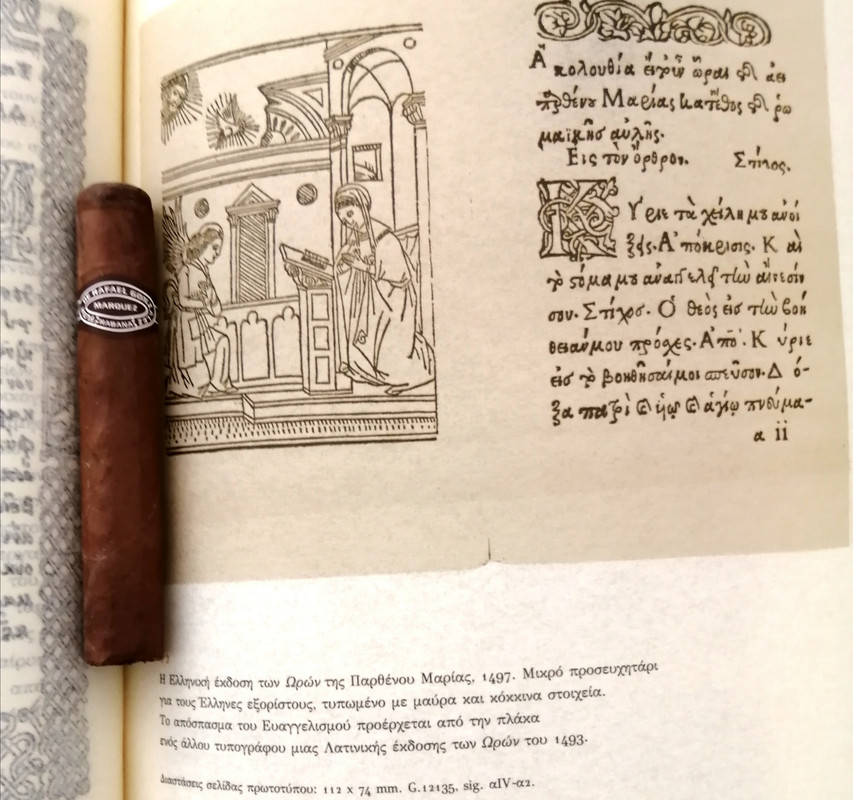 DE RAFAEL GONZ
MARQUEZ
HABANA
Ἀκολουθία
ὧραι
Μαρίας
ῥω
μαϊκῆσ αὐλῆς.
Εις τὸν ὄρθρον. Στίχος.
Κ Ύριε τὰ χείλη μου ἀνοί
ξεις. Ἀπόκρισις. Κ αὶ
τὸ στόμα μου ἀναγγελεῖ τὴν αἴνεσίν
σου. Στίχοσ. Ὁ θεὸς εἰσ τὴν βοή
θειάν μου πρόσχες. Ἀπό. Κ ύριε
εἰσ τὸ βοηθῆσαί μοι σπεῦσον. Δ ό-
ξα πατρὶ καὶ υἱῷ καὶ ἁγίῳ πνεύμα-
α ii
Η Ελληνική έκδοση των Ωρών της Παρθένου Μαρίας, 1497. Μικρό προσευχητάρι
για τους Έλληνες εξορίστους, τυπωμένο με μαύρα και κόκκινα στοιχεία.
Το απόσπασμα του Ευαγγελισμού προέρχεται από την πλάκα
ενός άλλου τυπογράφου μιας Λατινικής έκδοσης των Ωρών του 1493.
Διαστάσεις σελίδας πρωτοτύπου: 112 x 74 mm. G.12135, sig. αIV-α2.